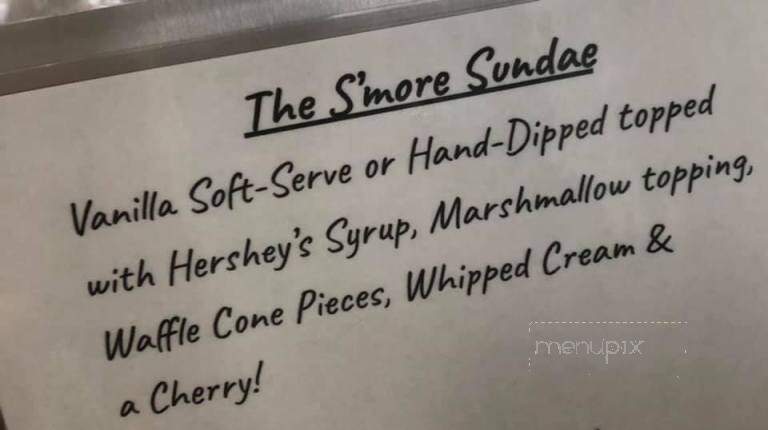 The S'more Sundae
Vanilla Soft-Serve or Hand-Dipped topped
with Hershey's Syrup, Marshmallow topping,
Waffle Cone Pieces, Whipped Cream &
a Cherry!
menupix